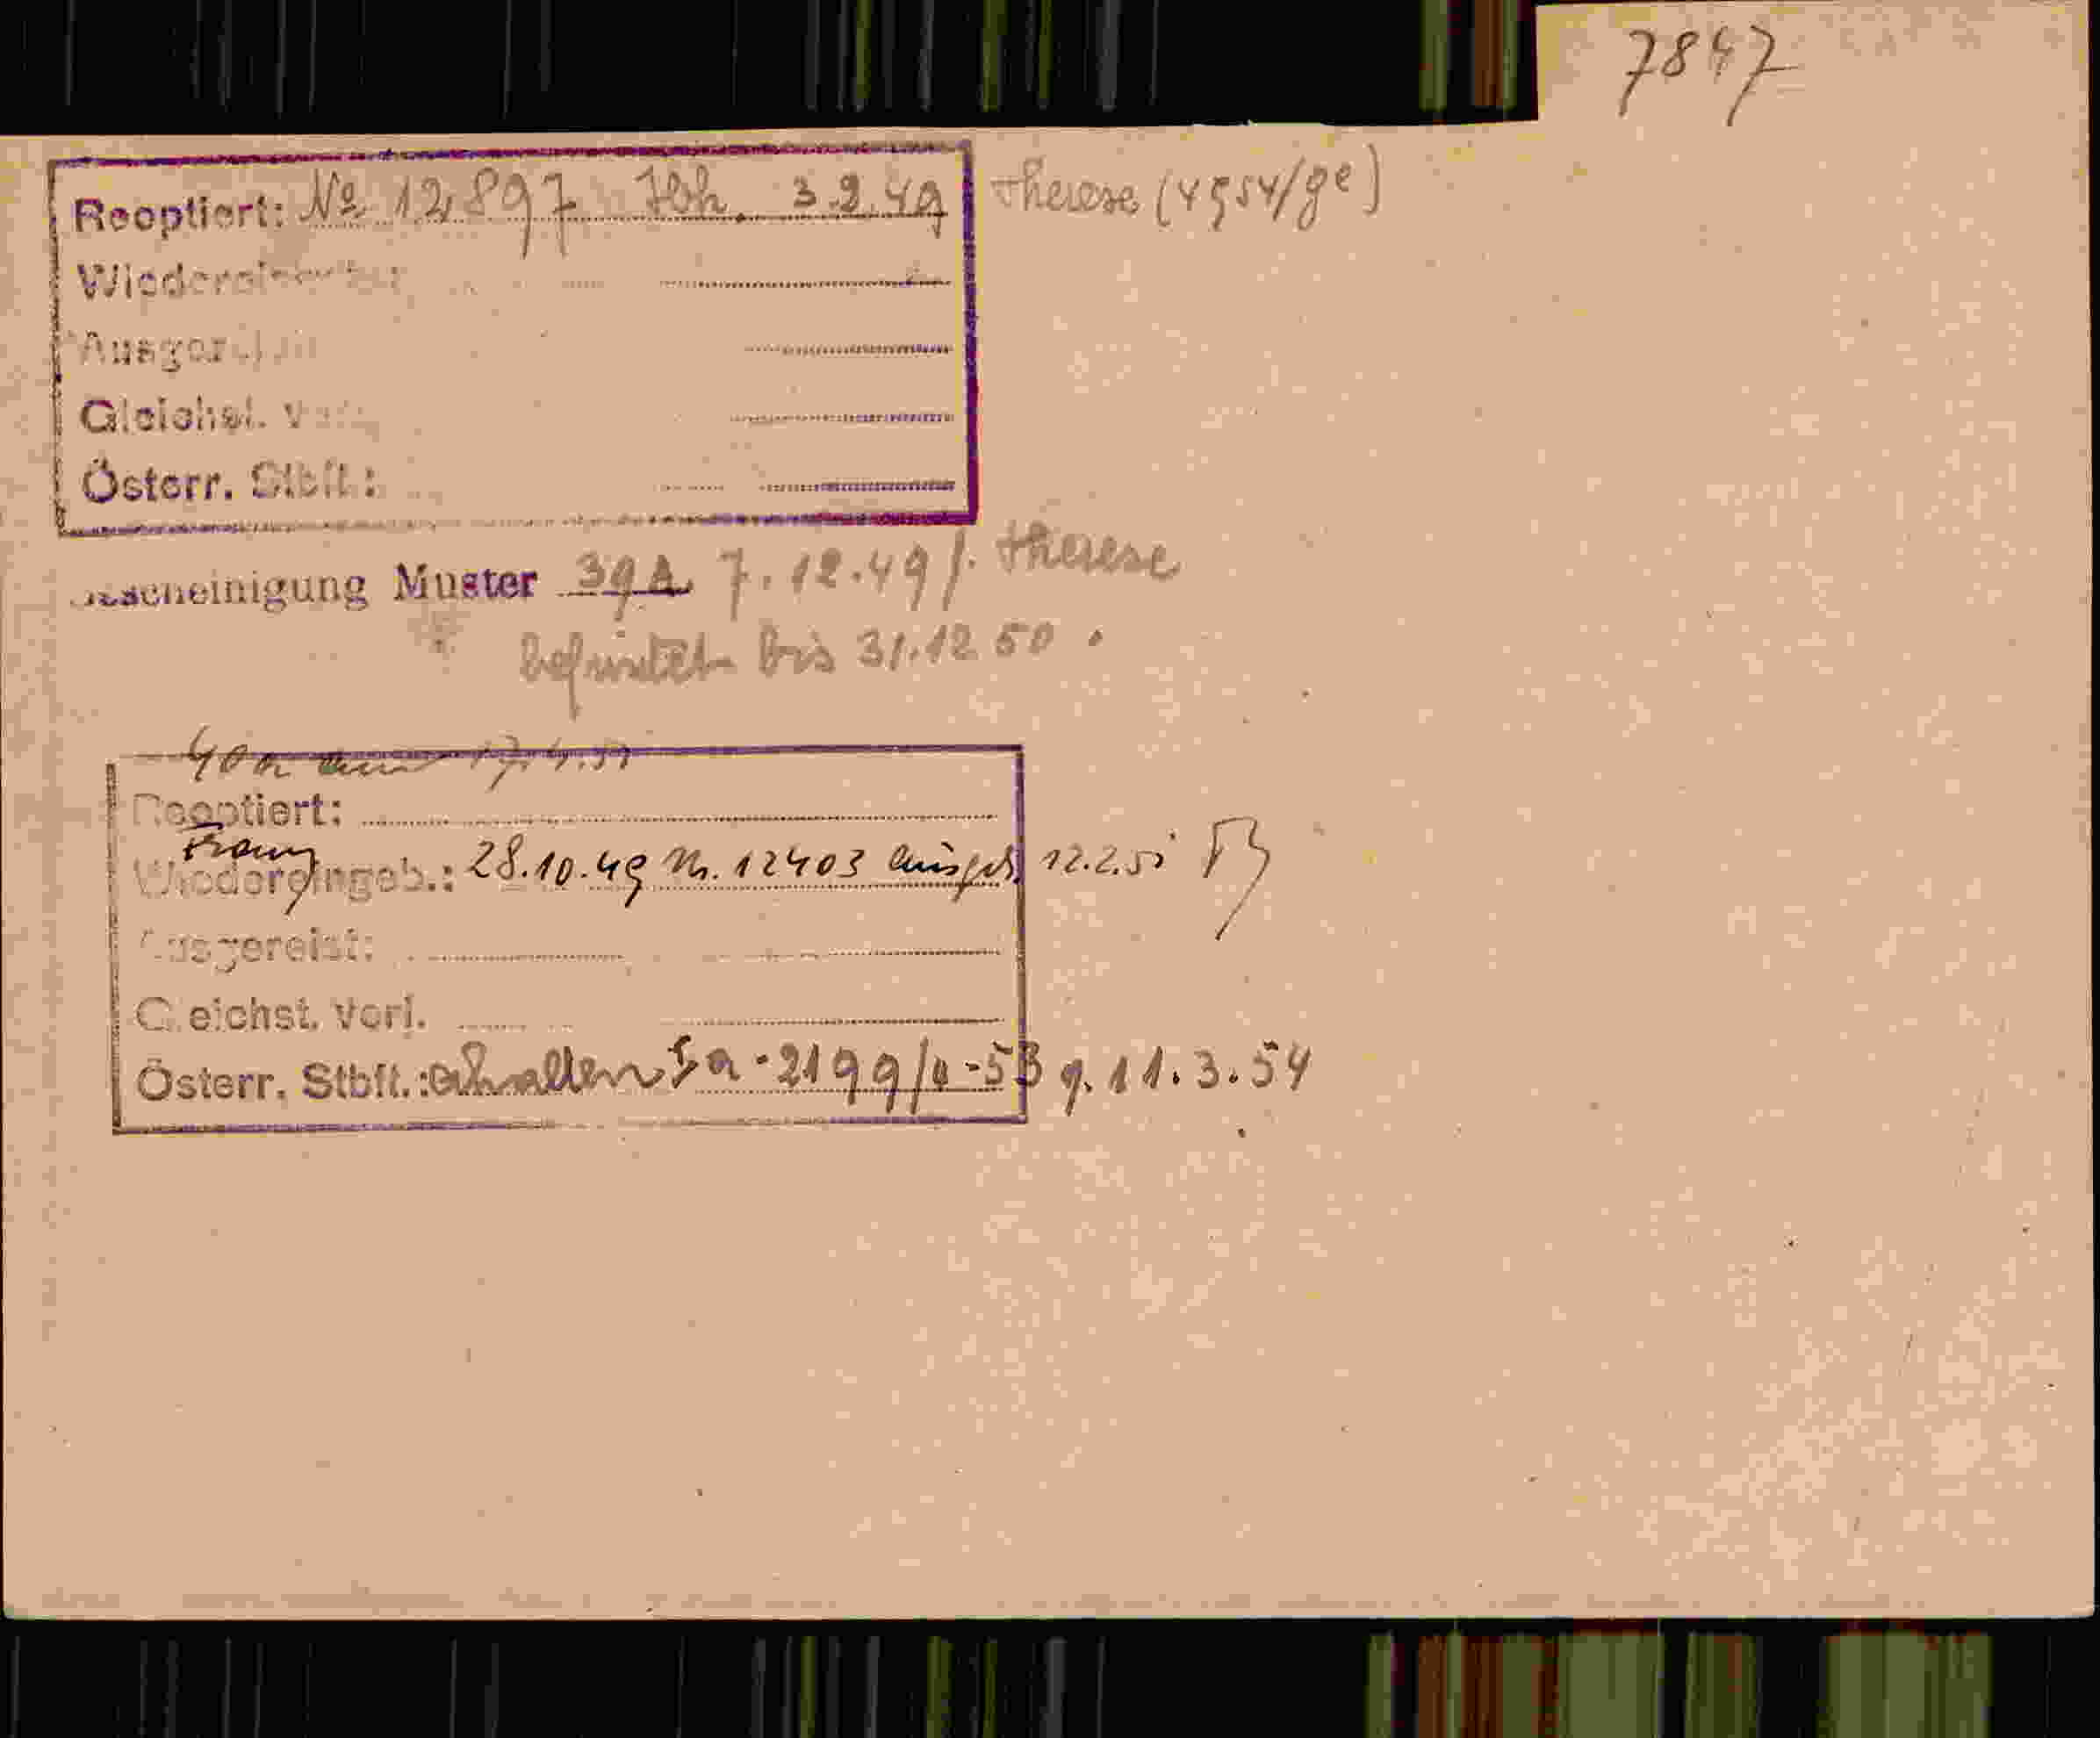 7847
Reoptiert: No 12897 3.9.49 Therese (4954/ge)
Ausger
Gleichst. Vorl.
Österr. Stbft.:
Bescheinigung Muster 39A 7.12.49 /. Therese
befristet bis 31.12.50.
40a 17.4.51
Reoptiert:
Franz
Wiedereingeb.: 28.10.49 Nr. 12403 12.2.51
Ausgereist:
Gleichst. Vorl.
Österr. Stbft.: erhalten Ia-2199/4-53 g. 11.3.54